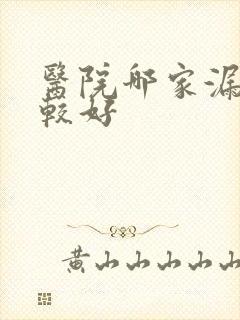 醫院哪家漏
較好
黃山山山山